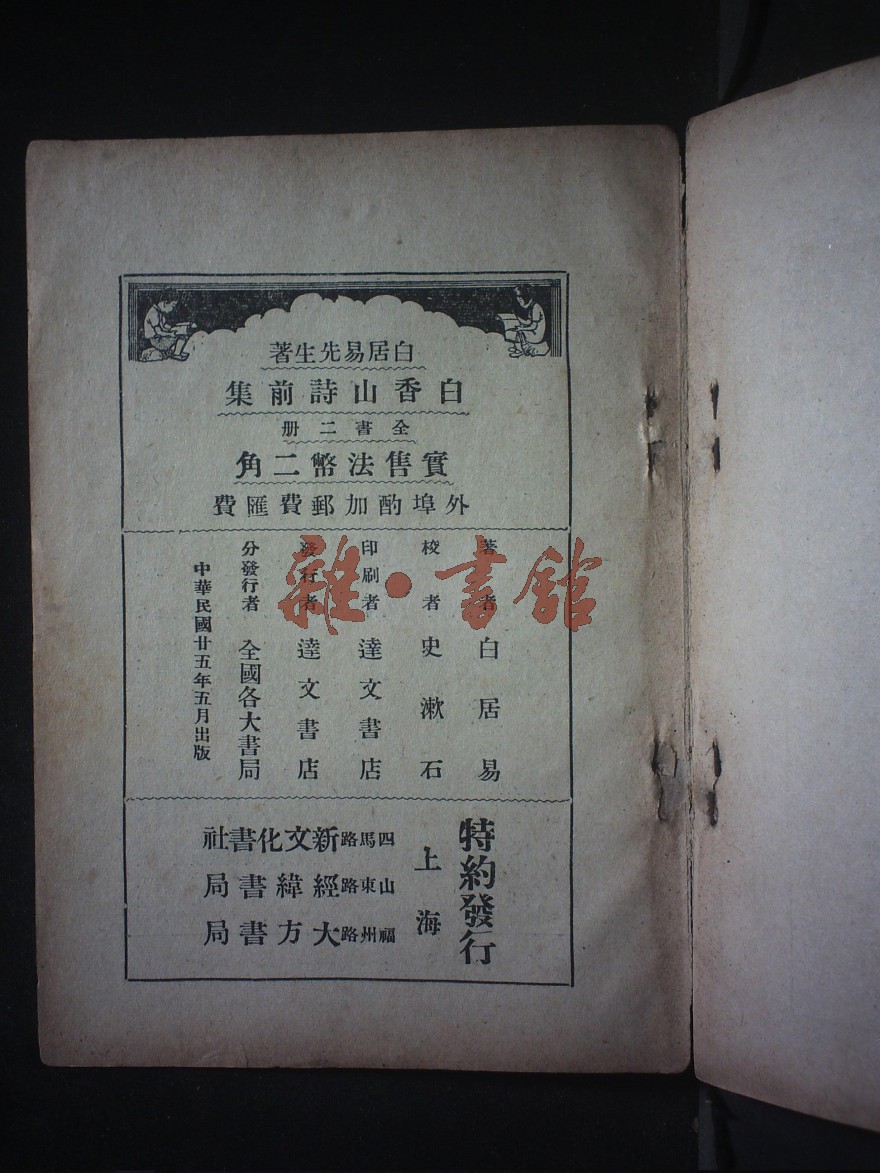 白居易先生著
白香山詩前集
全書二册
實售法幣二角
外埠酌加郵費匯費
著者 白居易
校者 史漱石
印刷者 達文書店
發行者 達文書店
分發行者 全國各大書局
中華民國廿五年五月出版
雜·書館
特約發行
上海
四馬路新文化書社
山東路經緯書局
福州路大方書局